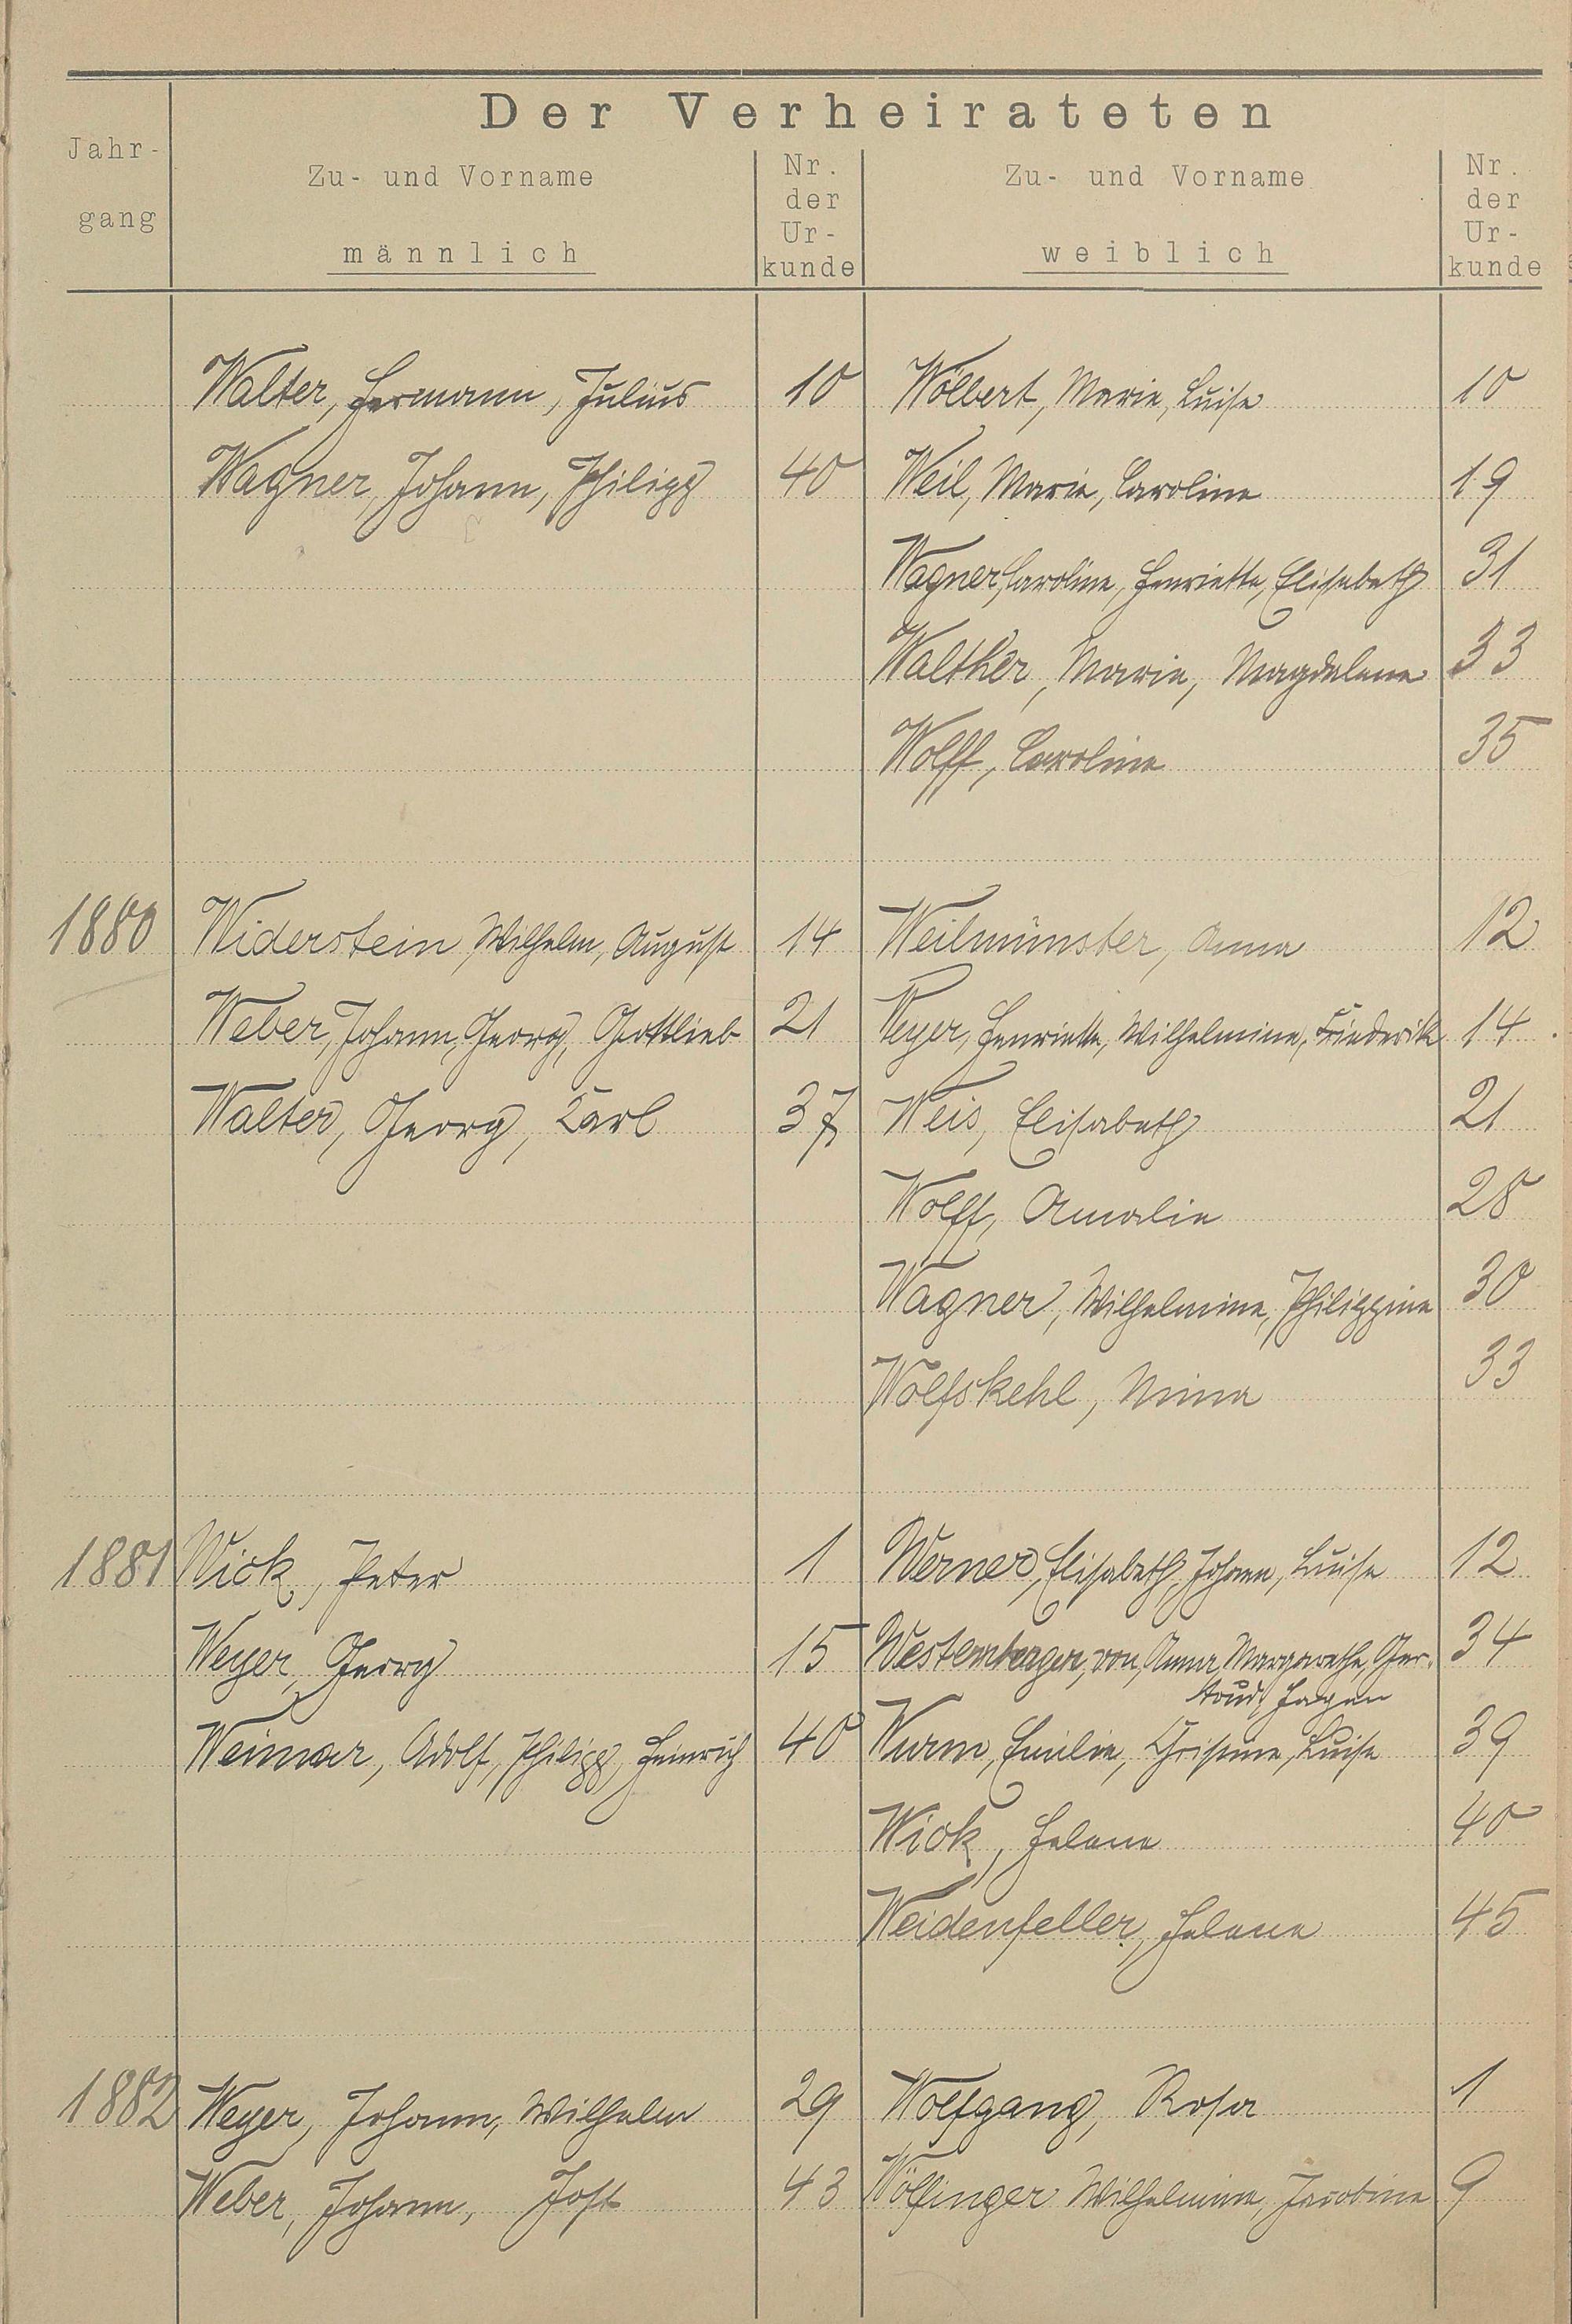 Der Verheirateten
Jahr-
gang
Zu- und Vorname
männlich
Nr.
der
Ur-
kunde
Zu- und Vorname
weiblich
Nr.
der
Ur-
kunde
Walter, Hermann, Julius 10 Wölbert, Marie, Luise 10
Wagner, Johann, Philipp 40 Weil, Marie, Caroline 19
Wagner, Caroline, Henriette, Elisabeth 31
Walther, Marie, Magdalene 33
Wolff, Caroline 35
1880 Widerstein, Wilhelm, August 14 Weilmünster, Anna 12
Weber, Johann, Georg, Gottlieb 21 Weyer, Henriette, Wilhelmine, Friederike 14
Walter, Georg, Karl 37 Weis, Elisabeth 21
Wolff, Amalie 28
Wagner, Wilhelmine, Philippine 30
Wolfskehl, Mina 33
1881 Wick, Peter 1 Werner, Elisabeth, Johann, Luise 12
Weyer, Georg 15 Westernhagen, von, Anna, Margarethe, Ger- 34
trud Hagen
Weimar, Adolf, Philipp, Heinrich 40 Wurm, Emilie, Luise 39
Wick, Helene 40
Weidenfeller, Helene 45
1882 Weyer, Johann, Wilhelm 29 Wolfgang, Rosa 1
Weber, Johann, Jost 43 Wölfinger Wilhelmine, Jacobine 9